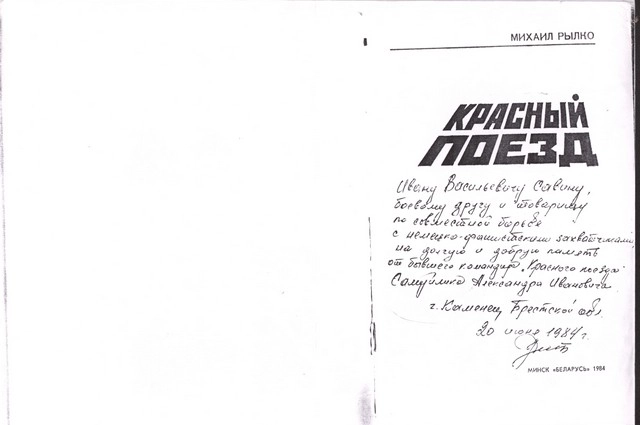 МИХАИЛ РЫЛКО
КРАСНЫЙ
ПОЕЗД
Ивану Васильевичу Савину,
боевому другу и товарищу
по совместной борьбе
с немецко-фашистскими захватчиками
на долгую и добрую память
от бывшего командира „Красного поезда"
Самуйлика Александра Ивановича.
г. Каменец Брестской обл.
20 июня 1984 г.
МИНСК «БЕЛАРУСЬ» 1984